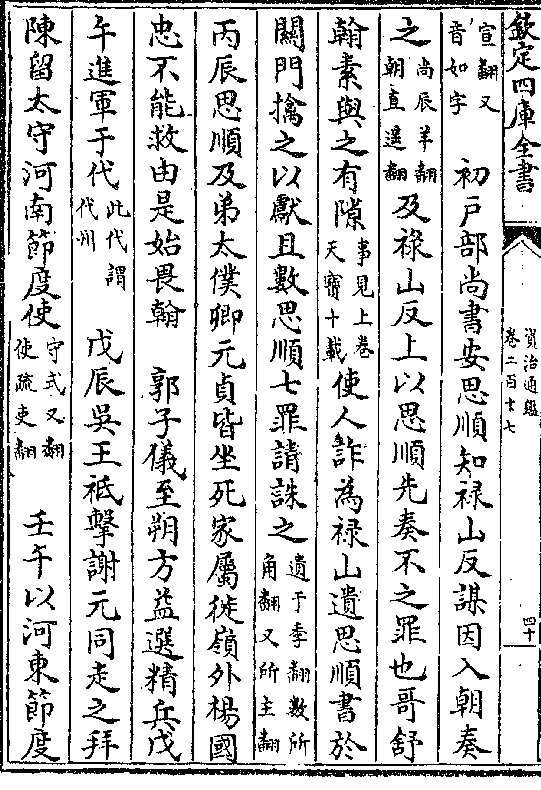 欽定四庫全書
資治通鑑
卷二百十七
四十
宣翻又音如字　初戸部尚書安思順知禄山反謀因入朝奏
之尚辰羊翻朝直遥翻及禄山反上以思順先奏不之罪也哥舒
翰素與之有隙事見上卷天寶十載使人詐為禄山遺思順書於
關門擒之以獻且數思順七罪請誅之遺于季翻數所角翻又所主翻
丙辰思順及弟太僕卿元貞皆坐死家屬徙嶺外楊國
忠不能救由是始畏翰　郭子儀至朔方益選精兵戊
午進軍于代此代謂代州　戊辰吳王祗擊謝元同走之拜
陳留太守河南節度使守式又翻使疏吏翻　壬午以河東節度